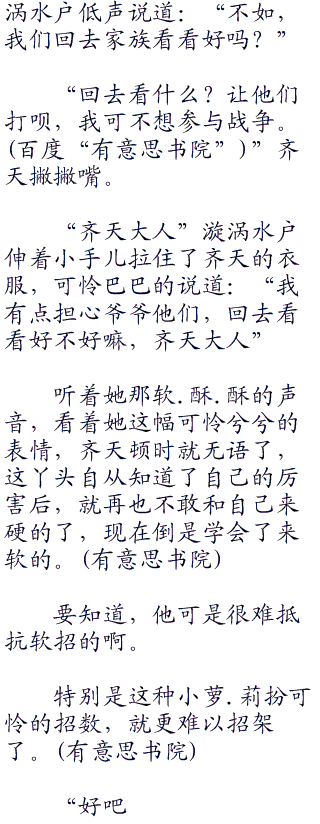 涡水户低声说道：“不如，
我们回去家族看看好吗？”
“回去看什么？让他们
打呗，我可不想参与战争。
(百度“有意思书院”)”齐
天撇撇嘴。
“齐天大人”漩涡水户
伸着小手儿拉住了齐天的衣
服，可怜巴巴的说道：“我
有点担心爷爷他们，回去看
看好不好嘛，齐天大人”
听着她那软.酥.酥的声
音，看着她这幅可怜兮兮的
表情，齐天顿时就无语了，
这丫头自从知道了自己的厉
害后，就再也不敢和自己来
硬的了，现在倒是学会了来
软的。(有意思书院)
要知道，他可是很难抵
抗软招的啊。
特别是这种小萝.莉扮可
怜的招数，就更难以招架
了。(有意思书院)
“好吧